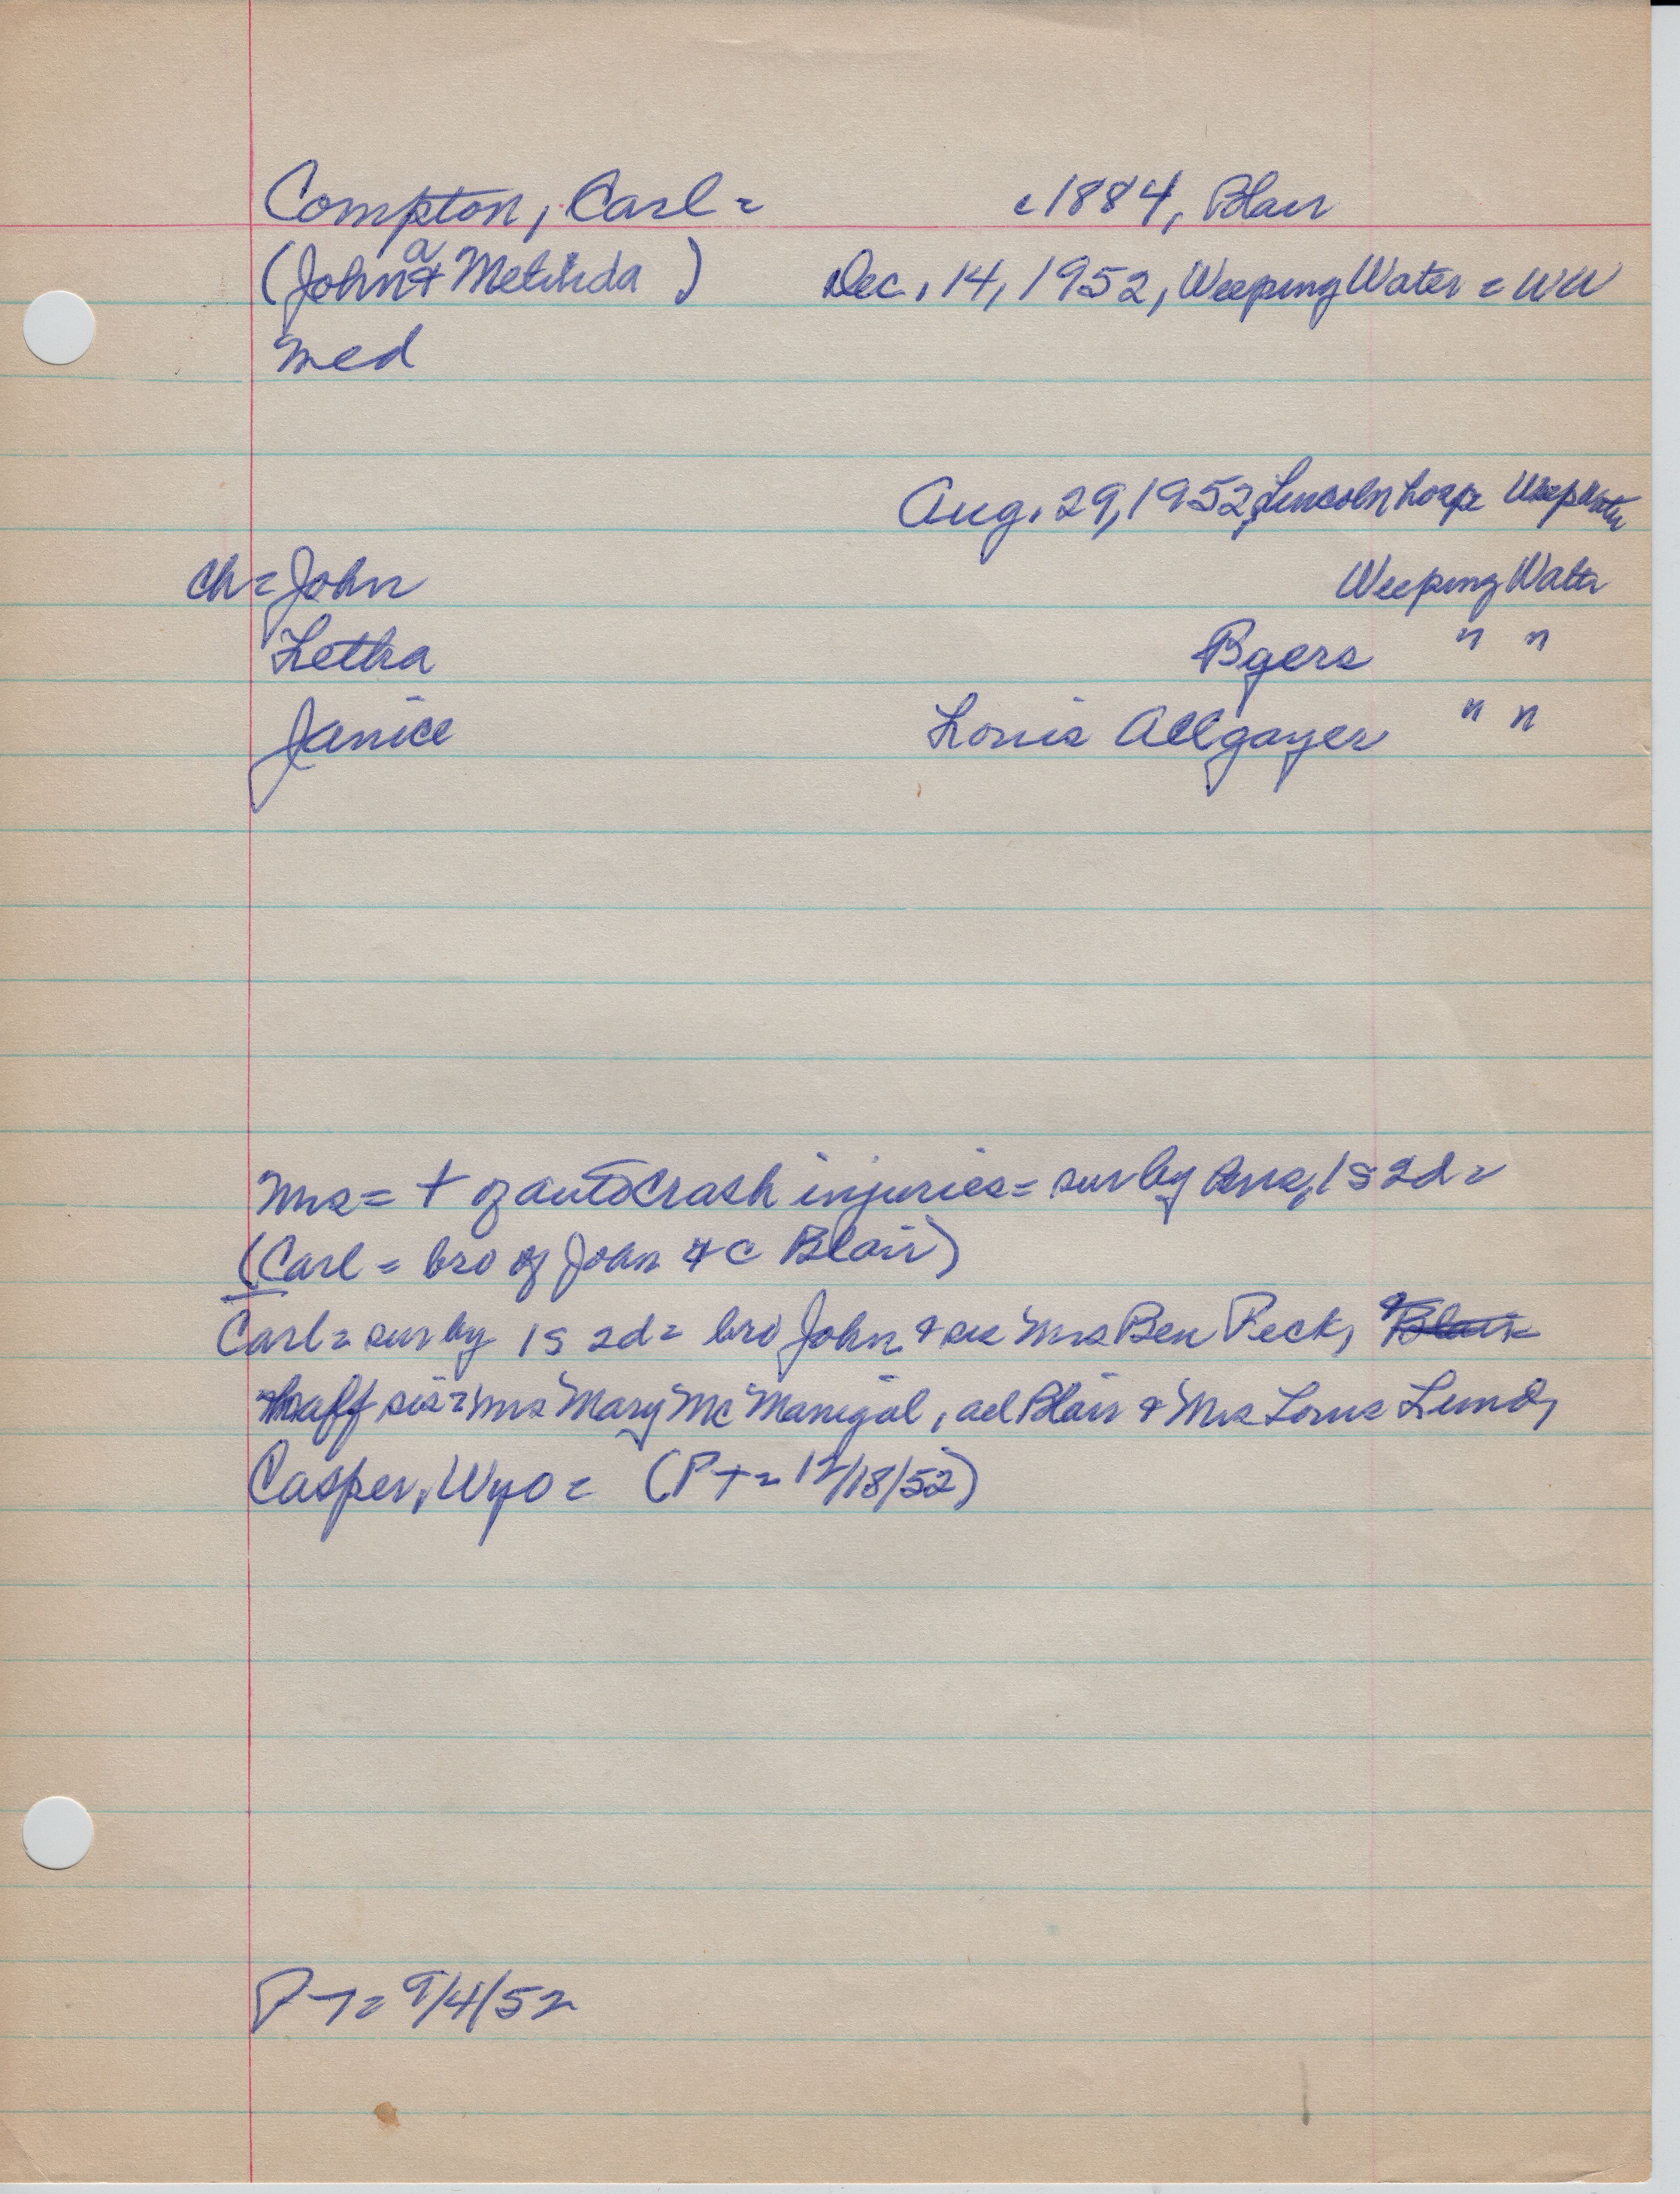 Compton, Carl = c1884, Blair
a
(John & Metilida ) Dec. 14, 1952, Weeping Water = WW
med
Aug. 29, 1952, Lincoln hosp Weep Water
Ch = John Weeping Water
Letha Byers " "
Janice Louis Allgayer " "
Mrs = + of auto crash injuries = sur by 1s 2d =
(Carl = bro of John & C Blair)
Carl = sur by 1s 2d = bro John & sis Mrs Ben Peck, & Blair
half sis = Mrs Mary McManigal, all Blair & Mrs Louis Lund,
Casper, Wyo = (P+ = 12/18/52)
P+ = 9/4/52